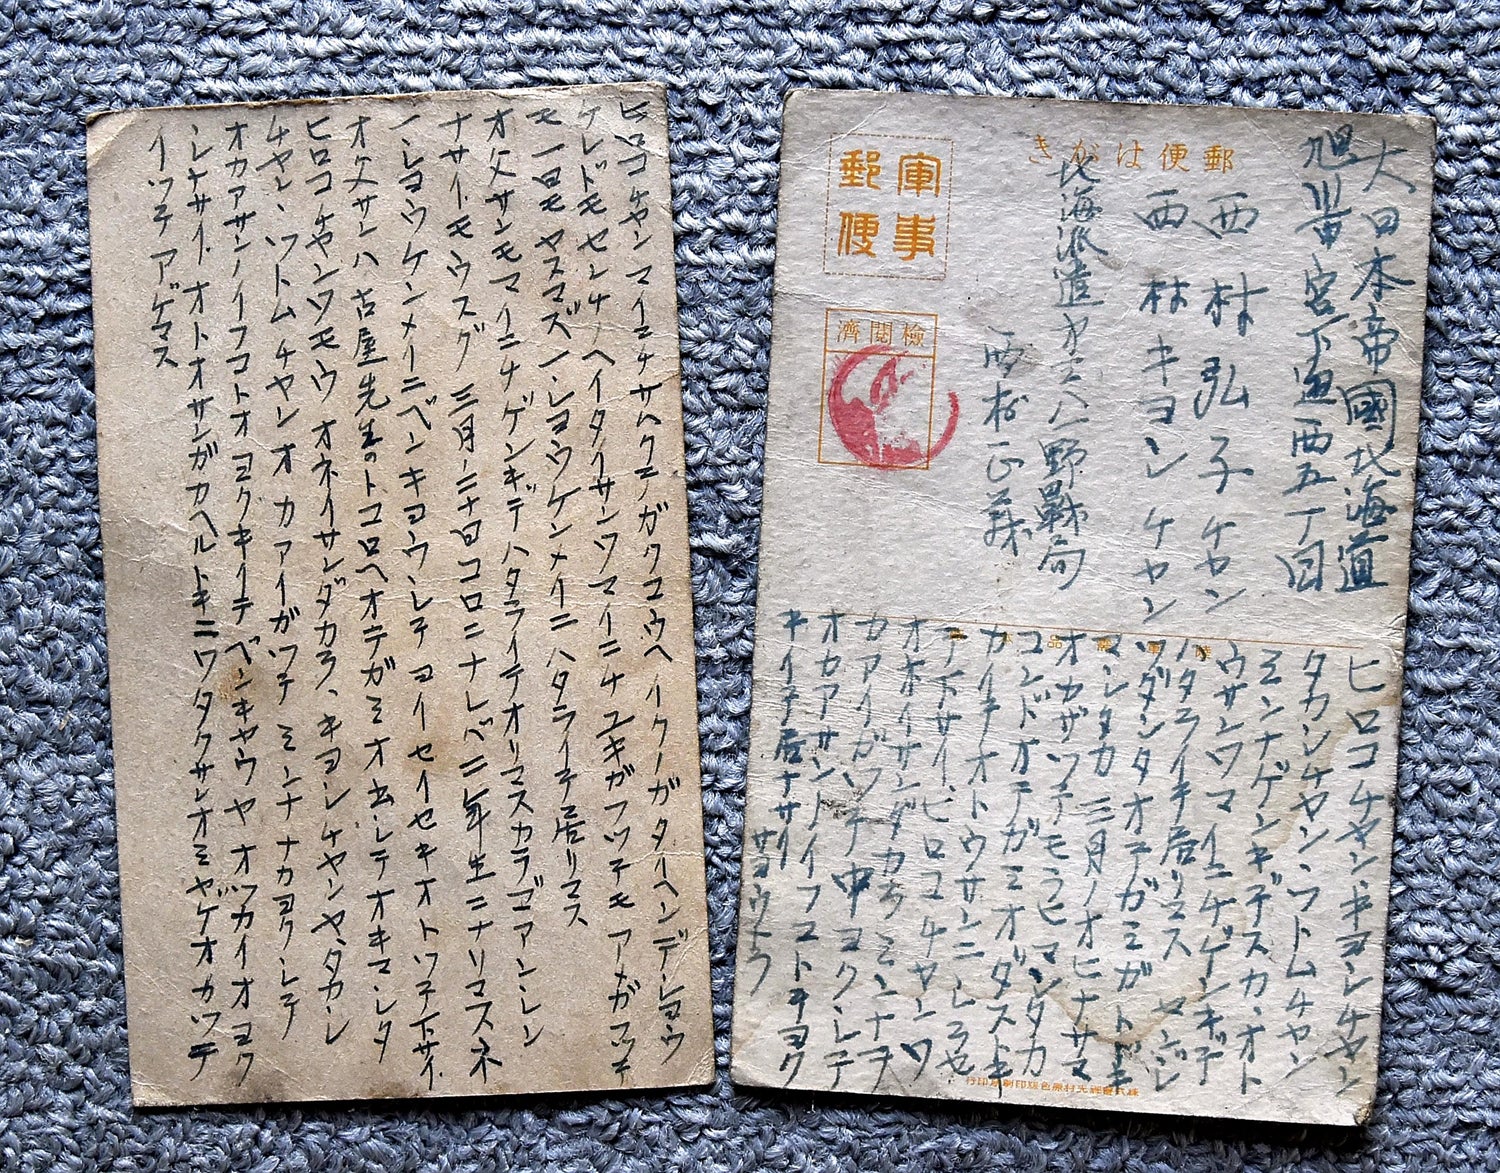 ヒロコチャンマイニチサムクテガクコウヘイクノガタイヘンデショウ
ケレドモセンチノヘイタイサンワマイニチユキガフツテモアメガフツテ
モ一日モヤスマズイッショウケンメイニハタライテ居リマス
オ父サンモマイニチゲンキデハタライテオリマスカラゴアンシン
ナサイモウスグ三月二十日コロニナレバ二年生ニナリマスネ
イッショウケンメイニベンキョウシテヨイセイセキオトツテ下サイ
オ父サンハ古屋先生ノトコロヘオテガミオ出シテオキマシタ
ヒロコチャンワモウオネイサンダカラ、キヨシチャンヤ、タカシ
チャン、ツトムチャンオカアイガツテミンナナカヨクシテ
オカアサンノイフコトオヨクキイテベンキャウヤオツカイオヨク
シナサイ オトオサンガカヘルトキニワタクサンオミヤゲオカツテ
イツテアゲマス
郵便はがき
軍事
郵便
検閲濟
大日本帝國北海道
旭川市宮下通西五丁目
西村弘子チャン
西村キヨシチャン
北海派遣
野戰局
西村正義
ヒロコチャンキヨシチャン
タカシチャン、ツトムチャン
ミンナゲンキデスカ、オト
ウサンワマイニチゲンキデ
ハタライテ居リマス センジ
ツダシタオテガミガトドキ
マシタカ 三月ノオヒナサマ
オカザツテモラヒマシタカ
コンドオテガミオダストキ
カイテオトウサンニシラセ
テ下サイ、ヒロコチャンワ
オネイサンダカラミンナヲ
カアイガツテ中ヨクシテ
オカアサンノイフコトヲヨク
キイテ居ナサイ サヨウナラ